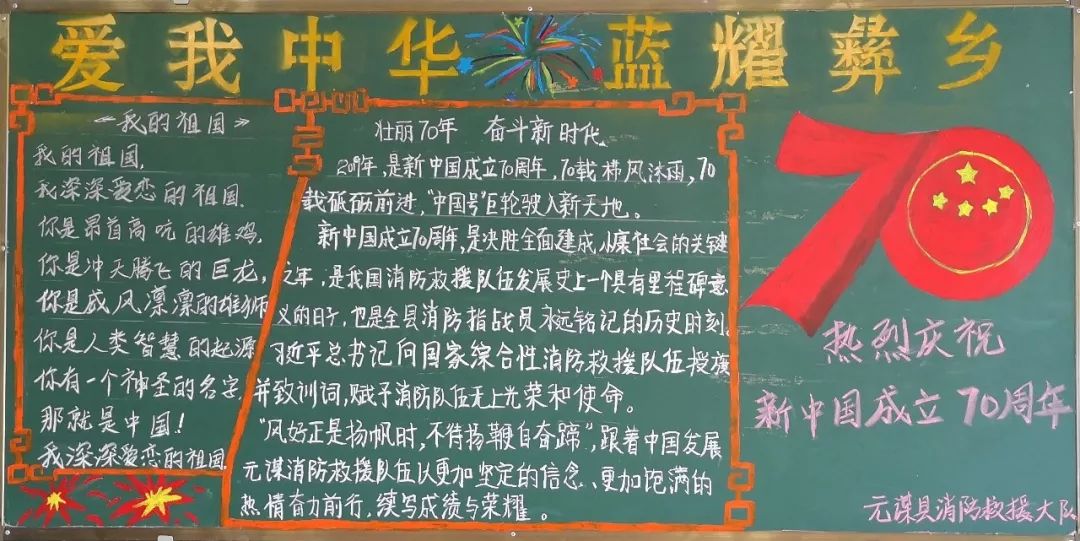 爱我中华 蓝耀彝乡
《我的祖国》
我的祖国,
我深深爱恋的祖国.
你是昂首高吭的雄鸡,
你是冲天腾飞的巨龙,
你是威风凛凛的雄狮
你是人类智慧的起源
你有一个神圣的名字,
那就是中国!
我深深爱恋的祖国.
壮丽70年 奋斗新时代
2019年,是新中国成立70周年,70载栉风沐雨,70
载砥砺前进,“中国号”巨轮驶入新天地。
新中国成立70周年,是决胜全面建成小康社会的关键
之年,是我国消防救援队伍发展史上一个具有里程碑意
义的日子,也是全县消防指战员永远铭记的历史时刻。
习近平总书记向国家综合性消防救援队伍授旗
并致训词,赋予消防队伍无上光荣和使命。
“风好正是扬帆时,不待扬鞭自奋蹄”,跟着中国发展
元谋消防救援队伍以更加坚定的信念、更加饱满的
热情奋力前行,续写成绩与荣耀。
70
热烈庆祝
新中国成立70周年
元谋县消防救援大队